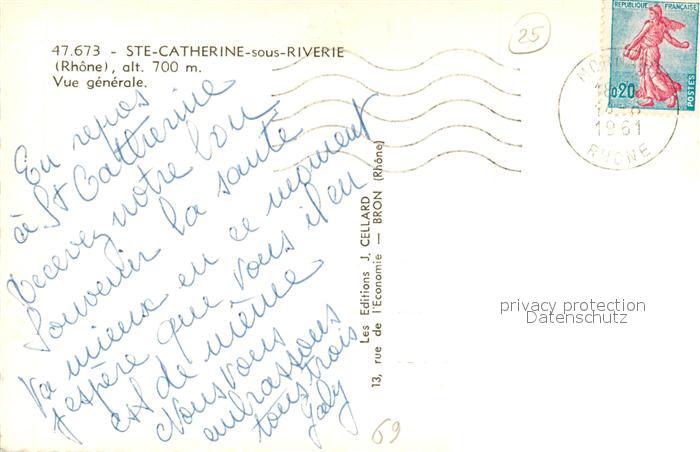 47.673 - STE-CATHERINE-sous-RIVERIE
(Rhône), alt. 700 m.
Vue générale.
25
REPUBLIQUE FRANÇAISE
0,20
POSTES
1961
RHONE
En repos
à St Catherine
recevez notre bon
souvenir la santé
va mieux en ce moment
j'espère que vous il en
est de même
Nous vous
embrassons
tous trois
Gaby
Les Editions J. CELLARD
13, rue de l'Economie — BRON (Rhône)
privacy protection
Datenschutz
69